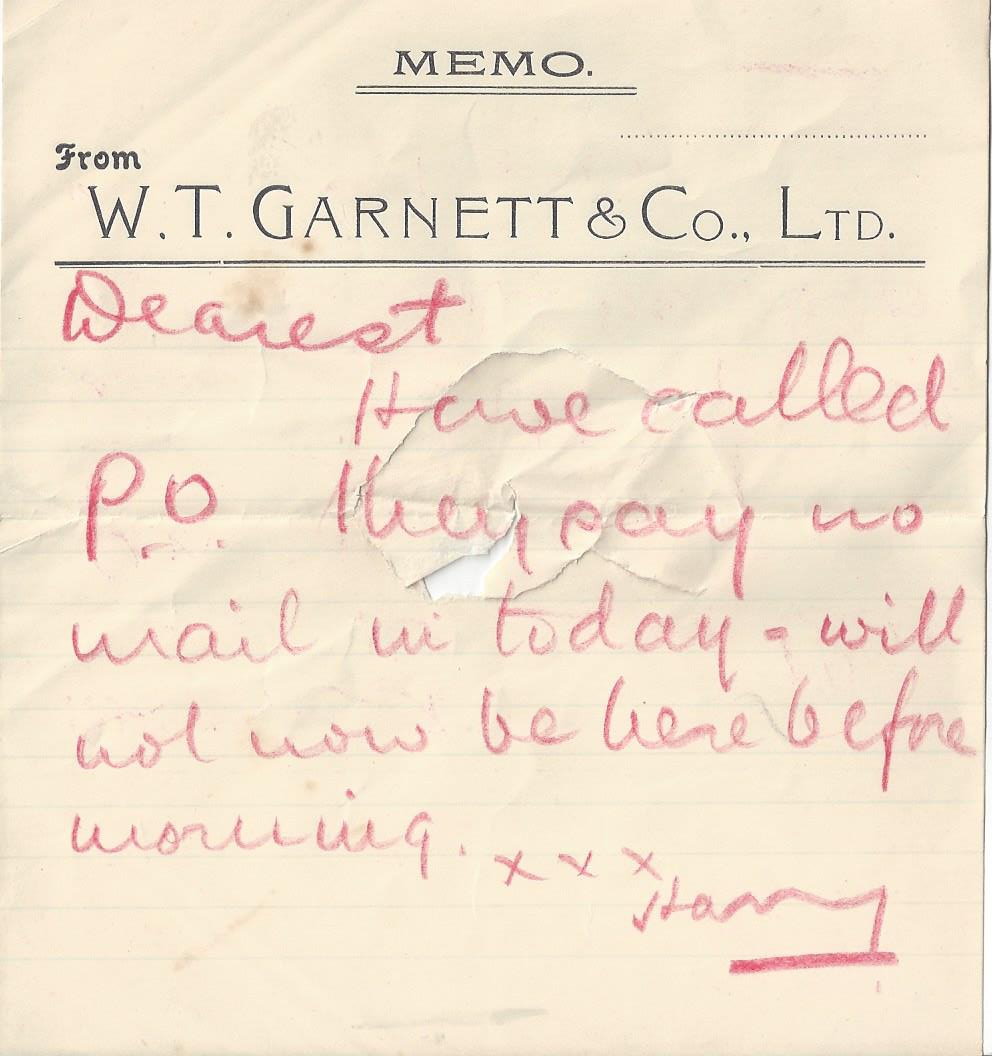 MEMO.
From
W. T. GARNETT & CO., LTD.
Dearest
Have called
P.O. they say no
mail in today - will
not now be here before
morning. x x x
Harry